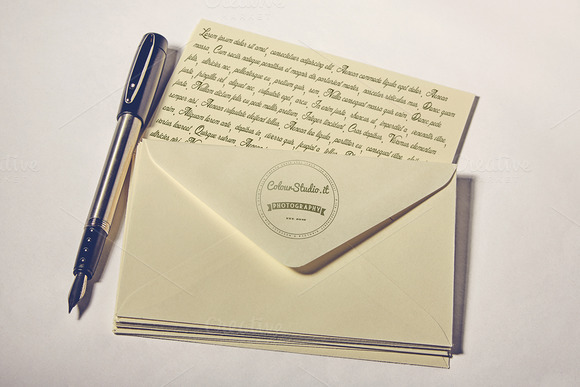 Lorem ipsum dolor sit amet, consectetuer adipiscing elit. Aenean commodo ligula eget dolor. Aenean
massa. Cum sociis natoque penatibus et magnis dis parturient montes, nascetur ridiculus mus. Donec quam
felis, ultricies nec, pellentesque eu, pretium quis, sem. Nulla consequat massa quis enim. Donec pede
justo, fringilla vel, aliquet nec, vulputate eget, arcu. In enim justo, rhoncus ut, imperdiet a, venenatis vitae,
justo. Nullam dictum felis eu pede mollis pretium. Integer tincidunt. Cras dapibus. Vivamus elementum
semper nisi. Aenean vulputate eleifend tellus. Aenean leo ligula, porttitor eu, consequat vitae, eleifend
enim. Aliquam lorem ante, dapibus in, viverra quis, feugiat a, tellus.
varius laoreet. Quisque rutrum.
ColourStudio.it
PHOTOGRAPHY